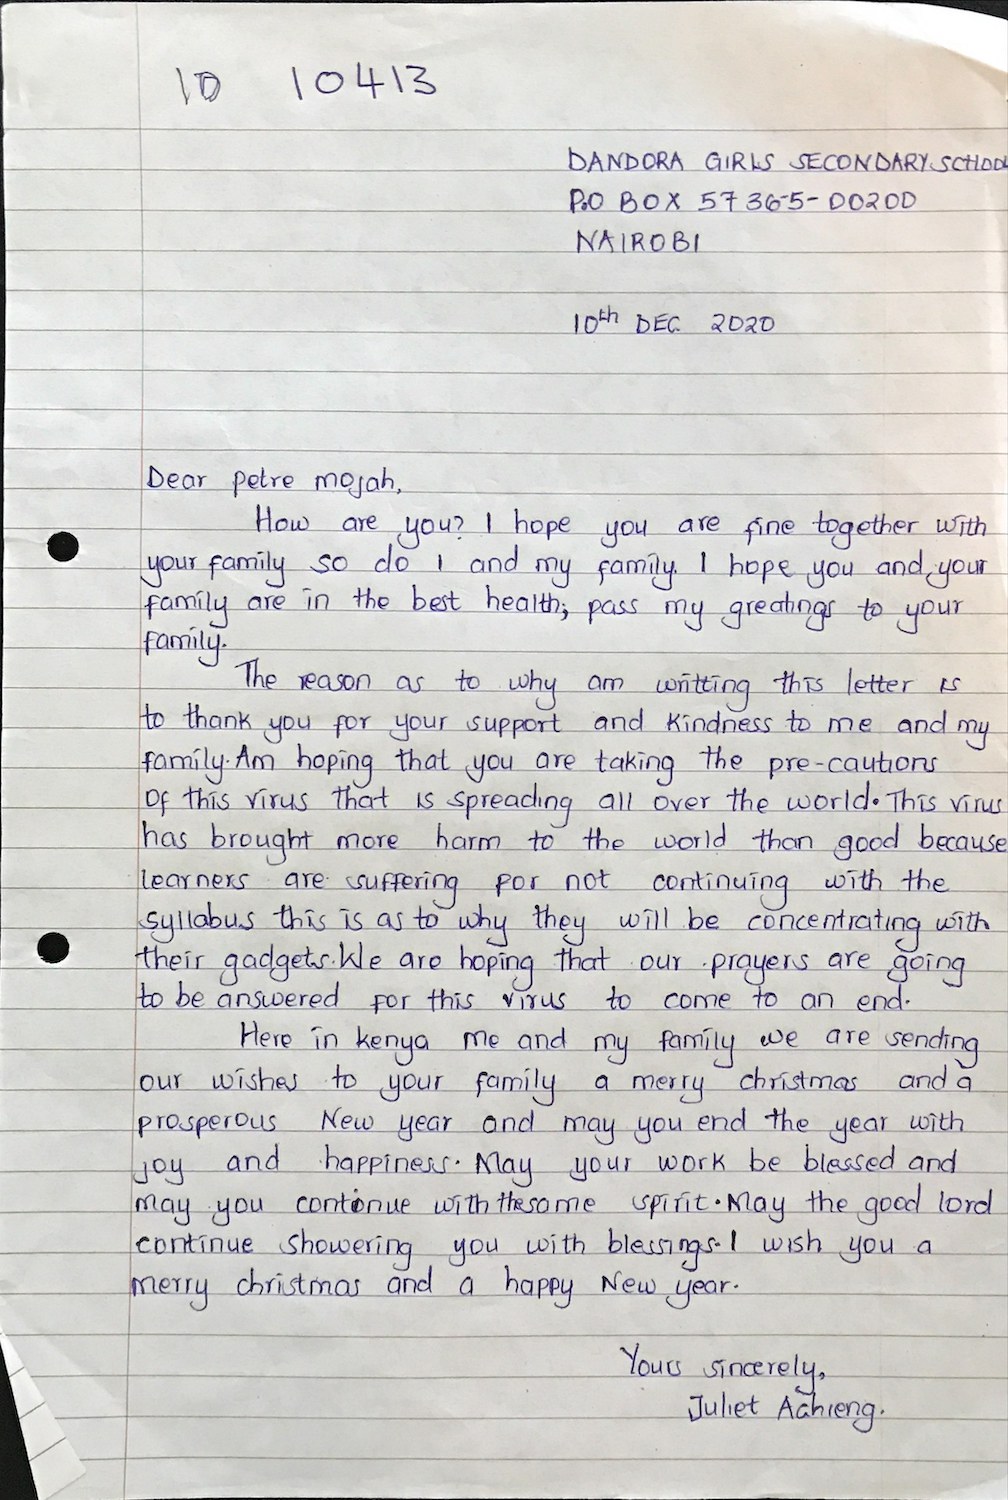 ID 10413
DANDORA GIRLS SECONDARY SCHOOL
P.O BOX 57365-00200
NAIROBI
10th DEC 2020
Dear petre mojah,
How are you? I hope you are fine together with
your family so do I and my family. I hope you and your
family are in the best health; pass my greatings to your
family.
The reason as to why am writting this letter is
to thank you for your support and kindness to me and my
family. Am hoping that you are taking the pre-cautions
Of this virus that is spreading all over the world. This virus
has brought more harm to the world than good because
learners are suffering for not continuing with the
syllabus this is as to why they will be concentrating with
their gadgets. We are hoping that our prayers are going
to be answered for this virus to come to an end.
Here in kenya me and my family we are sending
our wishes to your family a merry christmas and a
prosperous New year and may you end the year with
joy and happiness. May your work be blessed and
may you continue with the same spirit. May the good lord
continue showering you with blessings. I wish you a
merry christmas and a happy New year.
Yours sincerely,
Juliet Achieng.